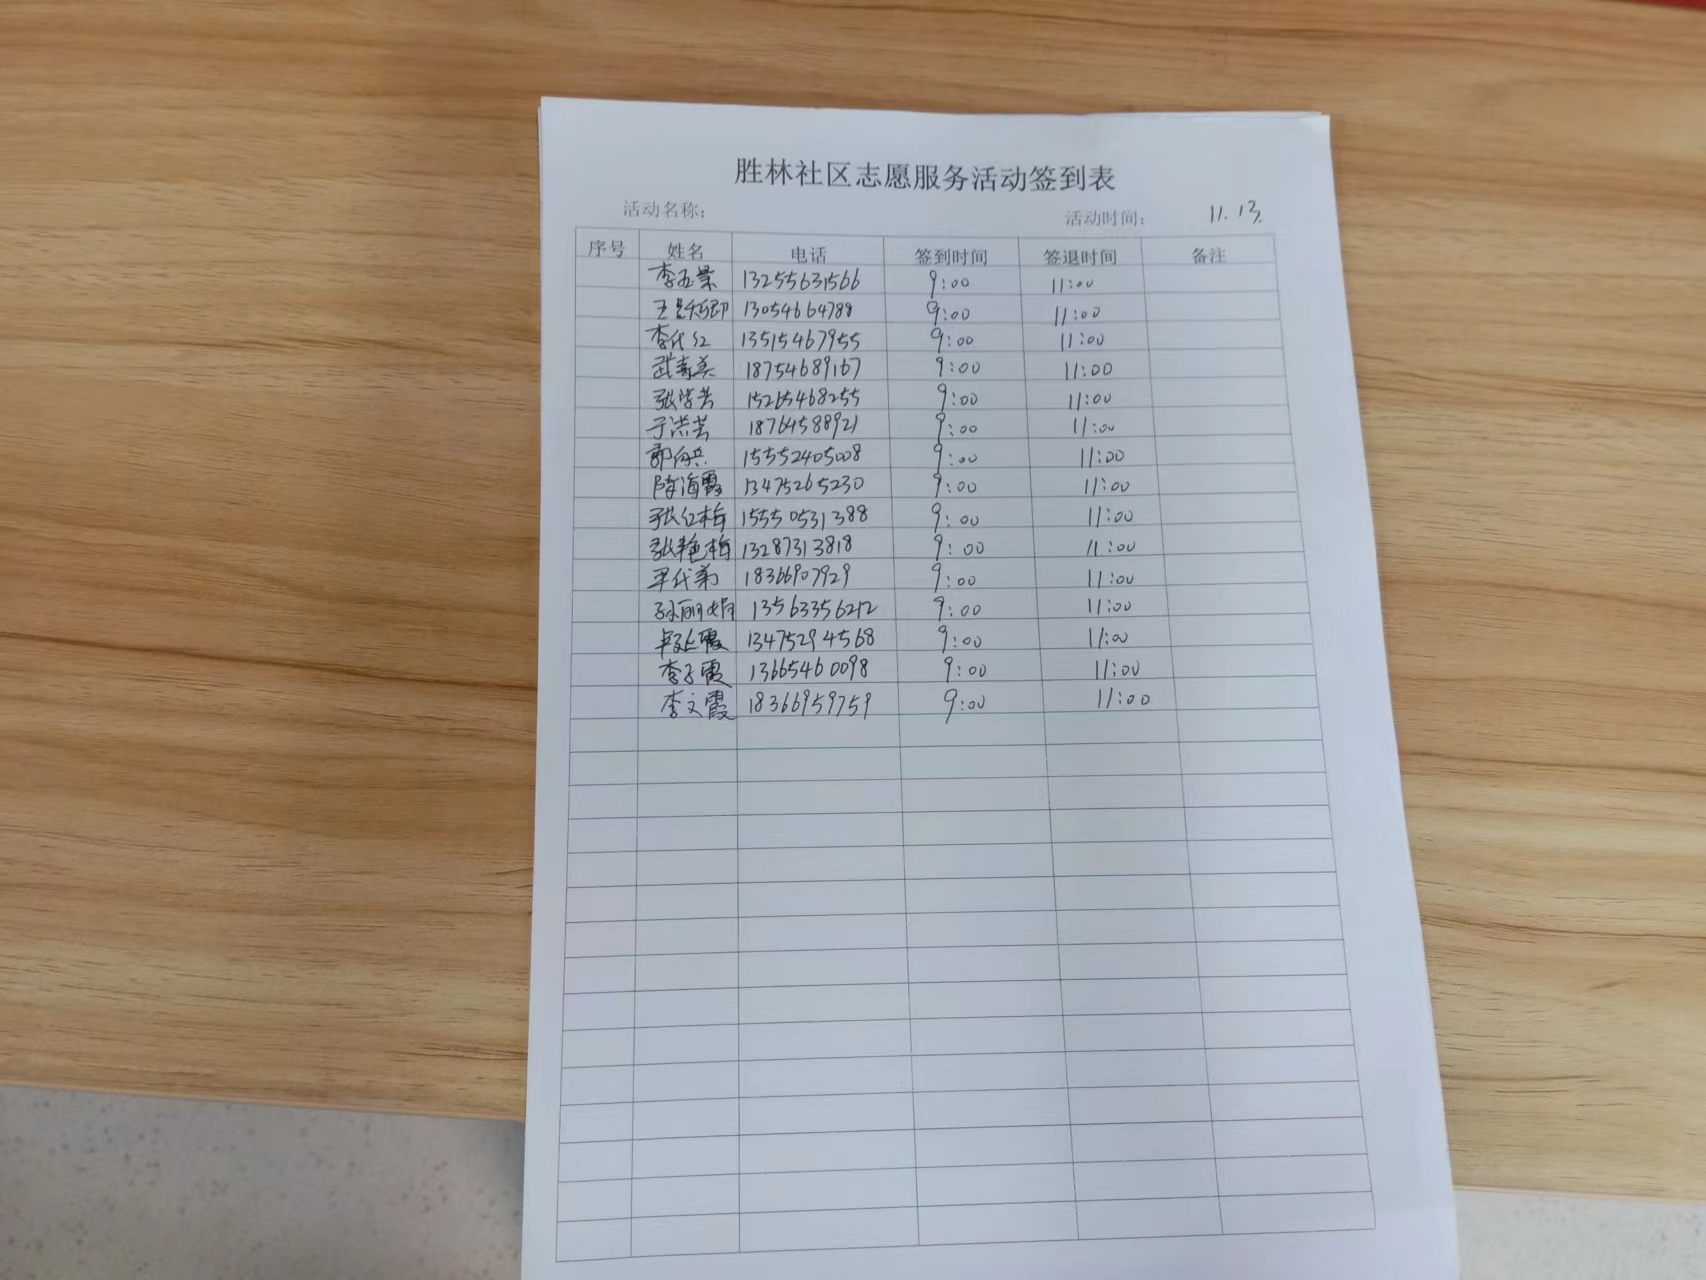 胜林社区志愿服务活动签到表
活动名称： 活动时间： 11.13.
序号 姓名 电话 签到时间 签退时间 备注
13255631566 9:00 11:00
13054664788 9:00 11:00
李代红 13515467955 9:00 11:00
武喜英 18754689167 9:00 11:00
张学芳 15265468255 9:00 11:00
于洪芸 18764588921 9:00 11:00
15552405008 9:00 11:00
陈海霞 13475265230 9:00 11:00
张红梅 15550531388 9:00 11:00
张艳梅 13287313818 9:00 11:00
18366907929 9:00 11:00
孙丽娟 13563356212 9:00 11:00
13475294568 9:00 11:00
李子霞 13665460098 9:00 11:00
李文霞 18366959759 9:00 11:00